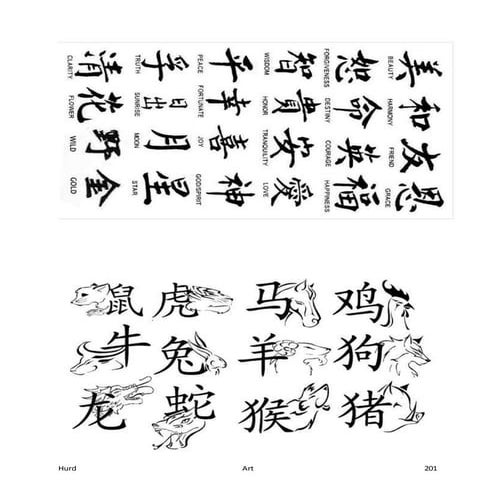 清 孚 平 智 恕 美
CLARITY TRUTH PEACE WISDOM FORGIVENESS BEAUTY
花 日出 幸 貴 命 和
FLOWER SUNRISE FORTUNATE HONOR DESTINY HARMONY
野 月 喜 安 英 友
WILD MOON JOY TRANQUILITY COURAGE FRIEND
金 星 神 愛 福 恩
GOLD STAR GOD/SPIRIT LOVE HAPPINESS GRACE
鼠 虎 马 鸡
牛 兔 羊 狗
龙 蛇 猴 猪
Hurd Art 201